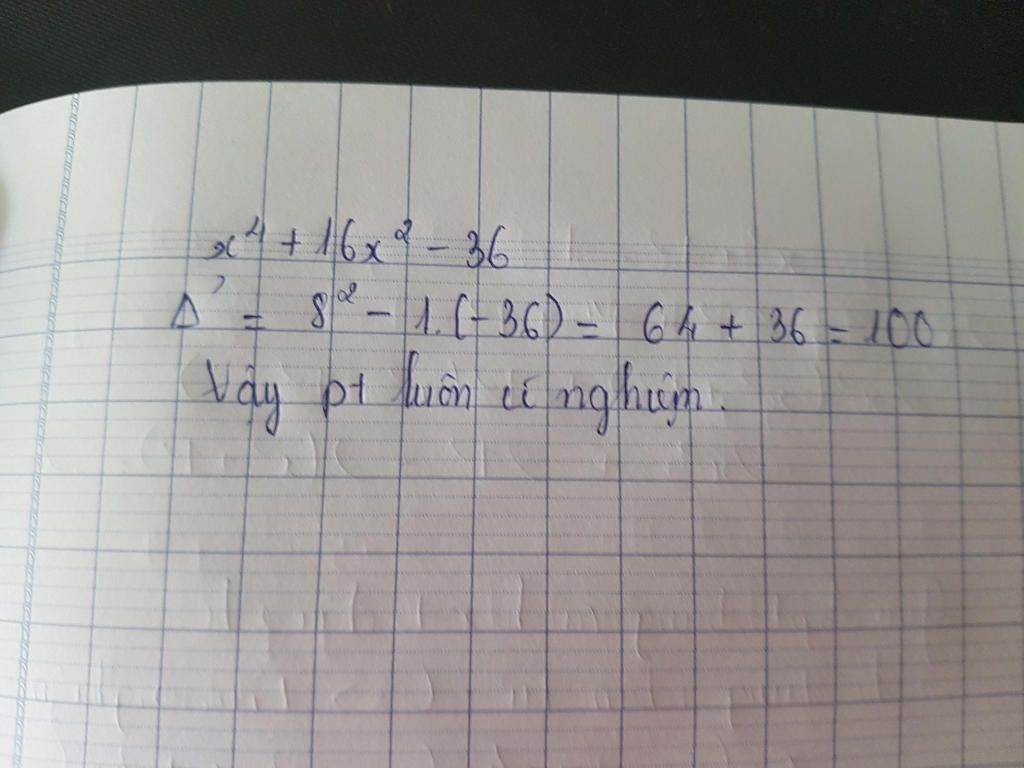 x⁴ + 16x² - 36
Δ' = 8² - 1.(-36) = 64 + 36 = 100
Vậy pt luôn có nghiệm.